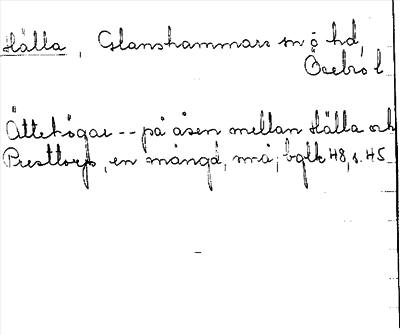 Hälla, Glanshammars sn o hd,
Örebro l
Ättehögar -- på åsen mellan Hälla och
Presttorp, en mängd, små; bglk 48, s. 45